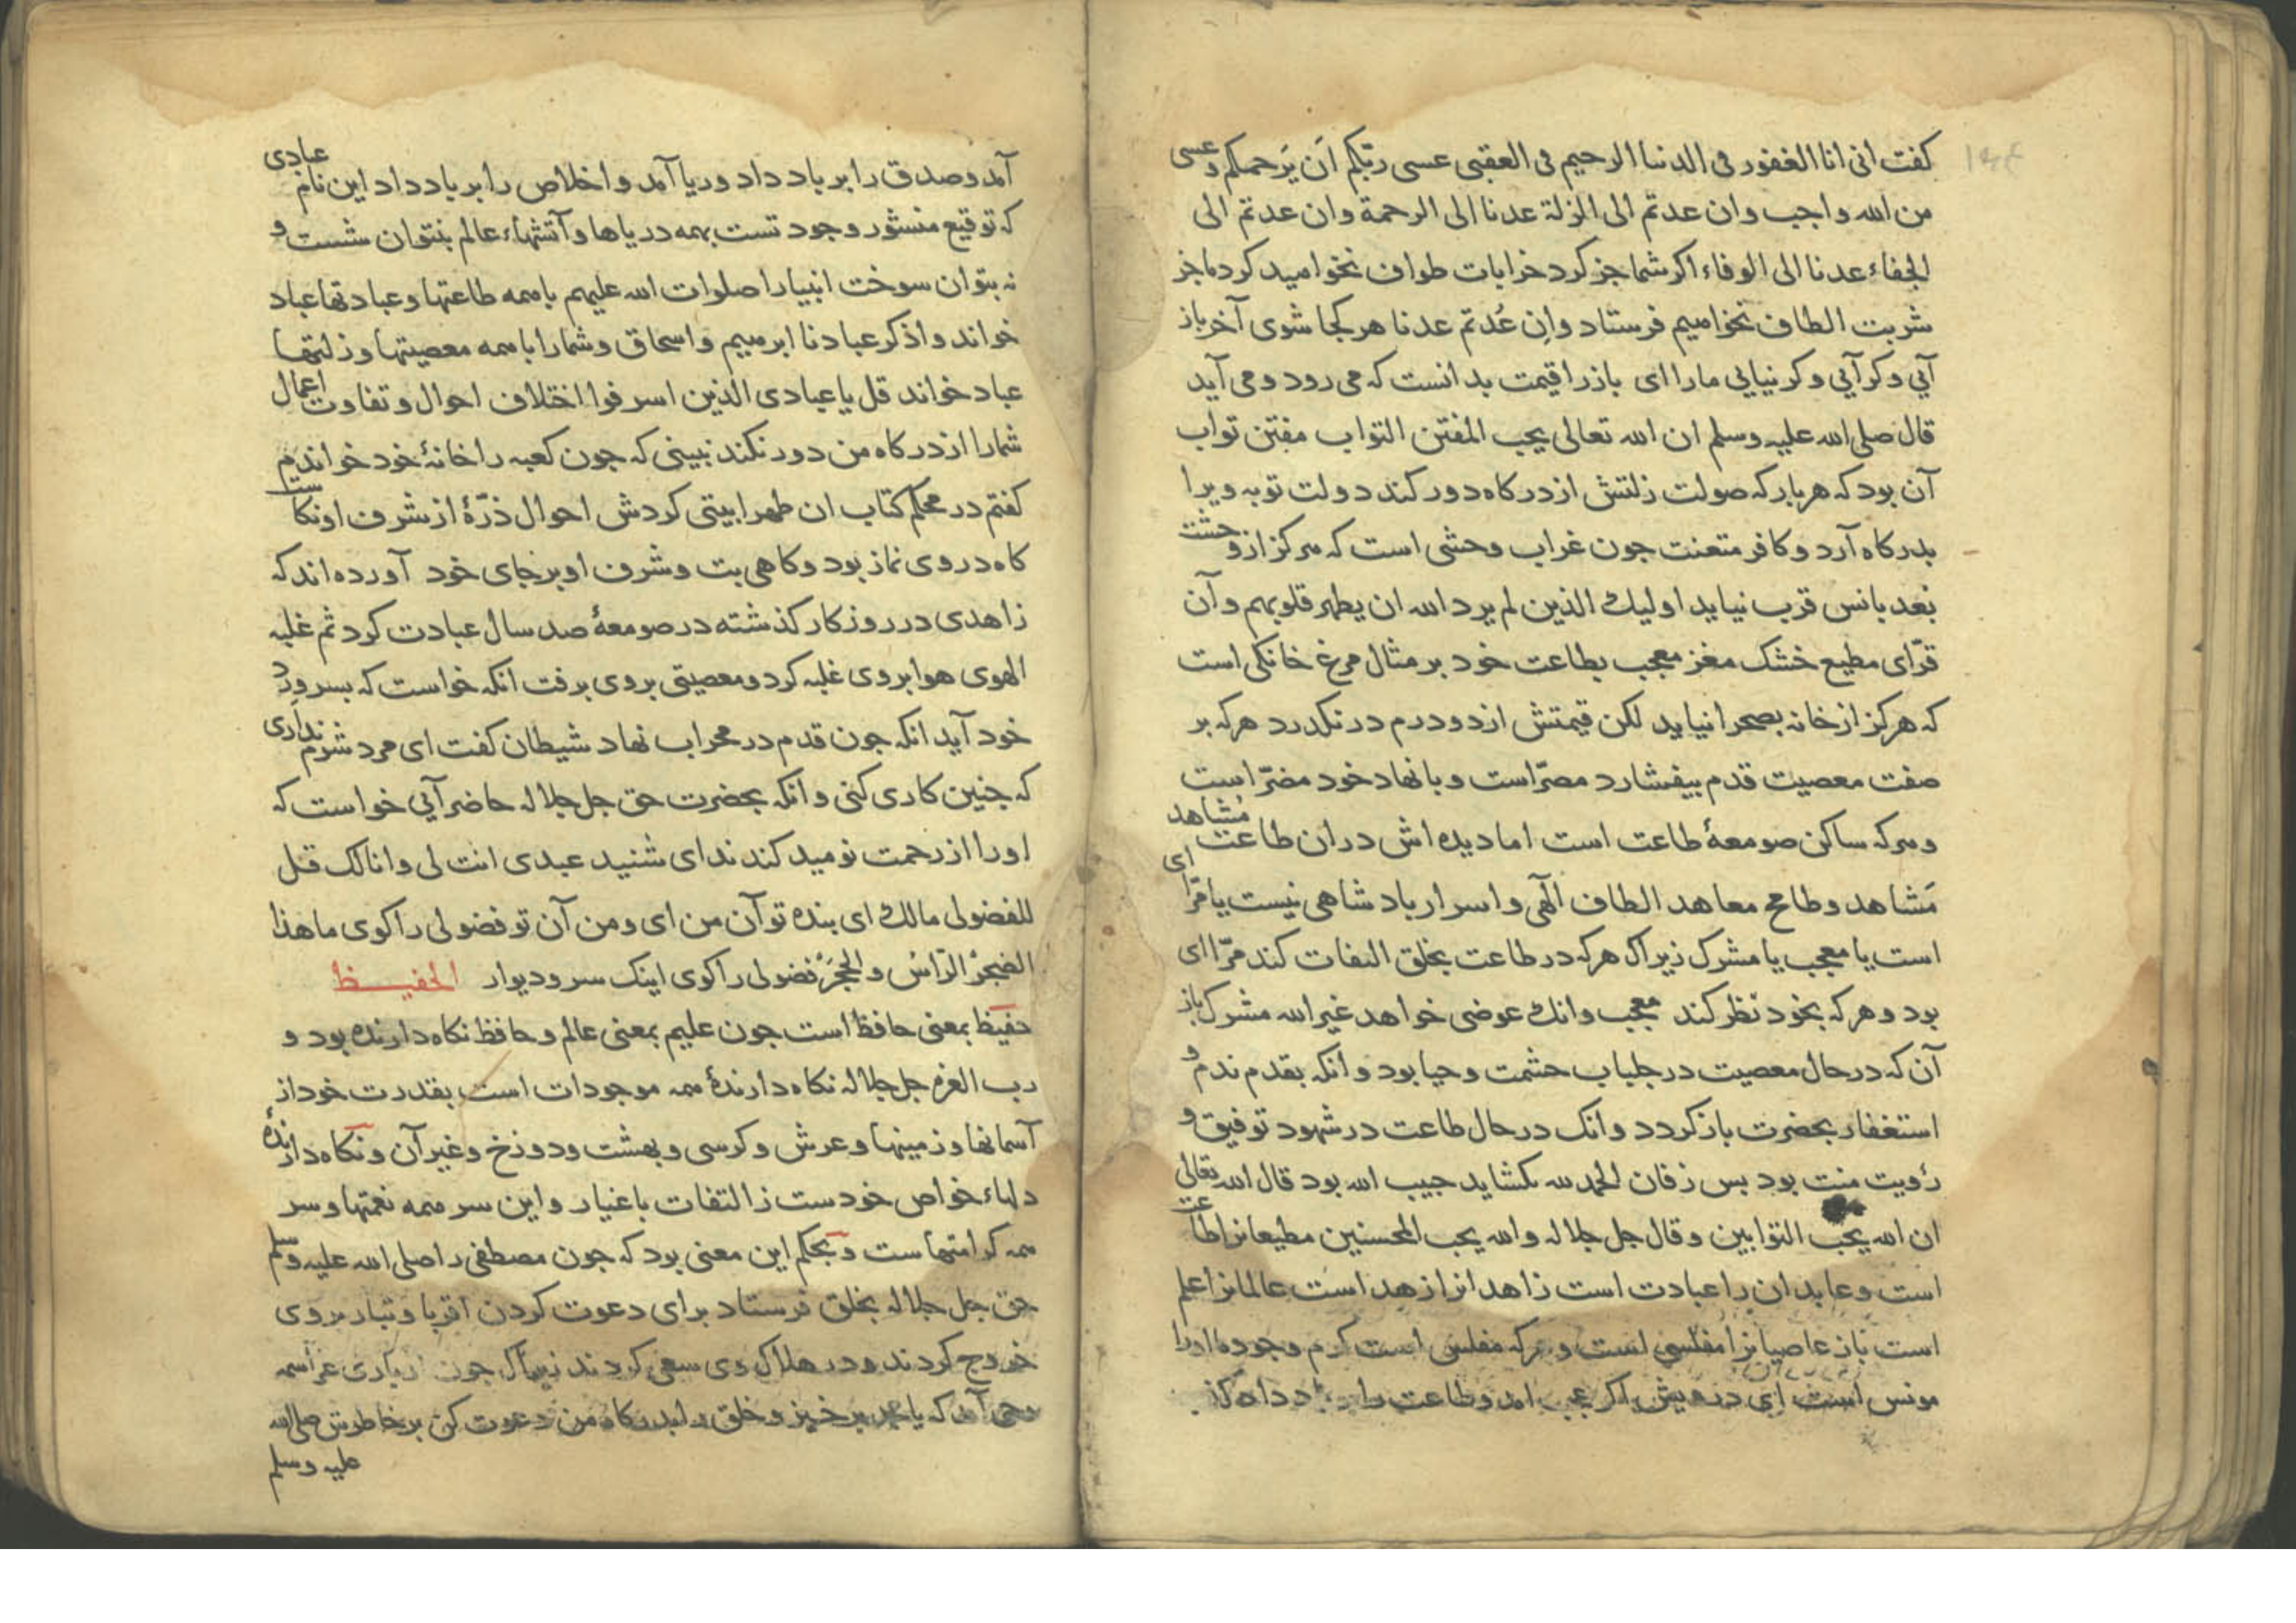 کفت انی انا الغفور فی الدنیا الرحیم فی العقبی عسی ربّکم اَن یَرحمکم و عسی
من الله واجب وان عدتم الی الزلة عدنا الی الرحمة وان عدتم الی
الجفاء عدنا الی الوفاء اکر شما جز کرد خرابات طواف نخواهید کرد ما جز
شربت الطاف نخواهیم فرستاد واِن عُدتم عدنا هر کجا شوی آخر باز
آیی و کر آیی و کر نیایی ما را ای باز را قیمت بدانست که می رود و می آید
قال صلی الله علیه وسلم ان الله تعالی یحب المفتن التواب مفتن تواب
آن بود که هر بار که صولت زلتش از درکاه دور کند دولت توبه ویرا
بدرکاه آرد و کافر متعنت جون غراب وحشی است که هرکز از وحشت
بُعد بانس قرب نیاید اولیک الذین لم یرد الله ان یطهر قلوبهم و آن
قرّای مطیع خشک مغز معجب بطاعت خود بر مثال مرغ خانکی است
که هرکز از خانه بصحرا نیاید لکن قیمتش از دو درم درنکذرد هرکه بر
صفت معصیت قدم بیفشارد مصرّ است و با نهاد خود مضرّ است
و هرکه ساکن صومعۀ طاعت است اما دیده اش در ان طاعت مُشاهد
مَشاهد و طامح معاهد الطاف آلهی و اسرار پادشاهی نیست یا مرّا ای
است یا معجب یا مشرک زیراک هرکه در طاعت بخلق التفات کند مرّا ای
بود و هرکه بخود نظر کند معجب وانک عوضی خواهد غیر الله مشرک باز
آن که در حال معصیت در جلباب حشمت و حیا بود و انکه بقدم ندم و
استغفار بحضرت باز کردد و انک در حال طاعت در شهود توفیق و
رؤیت منت بود بس زفان الحمد لله بکشاید حبیب الله بود قال الله تعالی
ان الله یحب التوابین و قال جل جلاله والله یحب المحسنین مطیعانرا طاعت
است و عابدان را عبادت است زاهدانرا زهد است عالمانرا علم
است باز عاصیانرا مفلسی است و هرکه مفلس است کرم وجود ما اورا
مونس است ای درویش اکر عجب امد و طاعت را
آمد و صدق را بر باد داد و ریا آمد و اخلاص را بر باد داد این نام عبادی
که توقیع منشور وجود تست بهمه دریاها و آتشهاء عالم بنتوان شست و
نه بتوان سوخت انبیا را صلوات الله علیهم با همه طاعتها و عبادتها عباد
خواند واذکر عبادنا ابرهیم واسحاق و شما را با همه معصیتها و زلتها
عباد خواند قل یا عبادی الذین اسرفوا اختلاف احوال و تفاوت اعمال
شما را از درکاه من دور نکند نبینی که جون کعبه را خانۀ خود خواندم
کفتم در محکم کتاب ان طهرا بیتی کردش احوال ذرّۀ از شرف او نکاست
کاه در وی نماز بود و کاهی بت و شرف او بر جای خود آورده اند که
زاهدی در روزکار کذشته در صومعۀ صد سال عبادت کرد ثم غلبه
الهوی هوا بر وی غلبه کرد و معصیتی بر وی برفت انکه خواست که بسر ورد
خود آید انکه جون قدم در محراب نهاد شیطان کفت ای مرد شرم نداری
که جنین کاری کنی و انکه بحضرت حق جل جلاله حاضر آیی خواست که
او را از رحمت نومید کند ندای شنید عبدی انت لی وانا لک قل
للفضولی مالک ای بنده تو آن من ای و من آن تو فضولی را کوی ما هذا
الضجرُ الرّاسُ والحجرُ فضولی را کوی اینک سر و دیوار الحفیظ
حفیظ بمعنی حافظ است جون علیم بمعنی عالم و حافظ نکاه دارنده بود و
رب العزه جل جلاله نکاه دارندۀ همه موجودات است بقدرت خود از
آسمانها و زمینها و عرش و کرسی و بهشت و دوزخ و غیر آن و نکاه دارندۀ
دلهاء خواص خودست ز التفات باغیار و این سر همه نعمتها و سر
همه کرامتهاست و بحکم این معنی بود که جون مصطفی را صلی الله علیه وسلم
حق جل جلاله بخلق فرستاد برای دعوت کردن اقربا و تبار بر وی
خروج کردند و در هلاک وی سعی کردند زیراک جون از باری عز اسمه
وحی آمد که یا محمد بر خیز و خلق را بدرکاه من دعوت کن بر خاطرش صلی الله
علیه وسلم